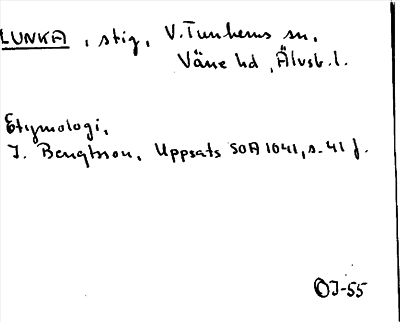 LUNKA, stig, V. Tunhems sn,
Väne hd, Älvsb. l.
Etymologi,
I. Bengtsson, Uppsats SOA 1041, s. 41 f.
OJ-55